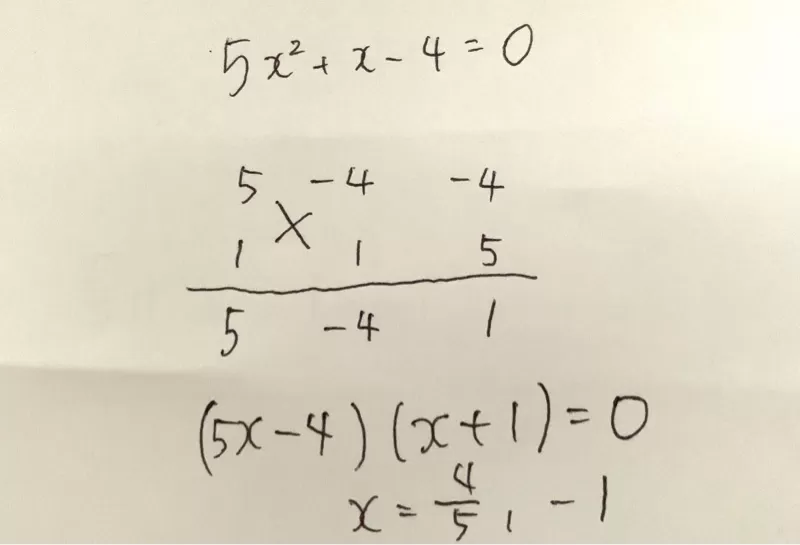 5x² + x - 4 = 0
5 -4 -4
1 1 5
5 -4 1
(5x-4)(x+1)=0
x = 4/5, -1